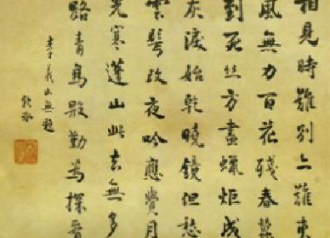 相見時難別亦難東
風無力百花殘春蠶
到死絲方盡蠟炬成
灰淚始乾曉鏡但愁
雲鬢改夜吟應覺月
光寒蓬山此去無多
路青鳥殷勤為探看
李義山無題